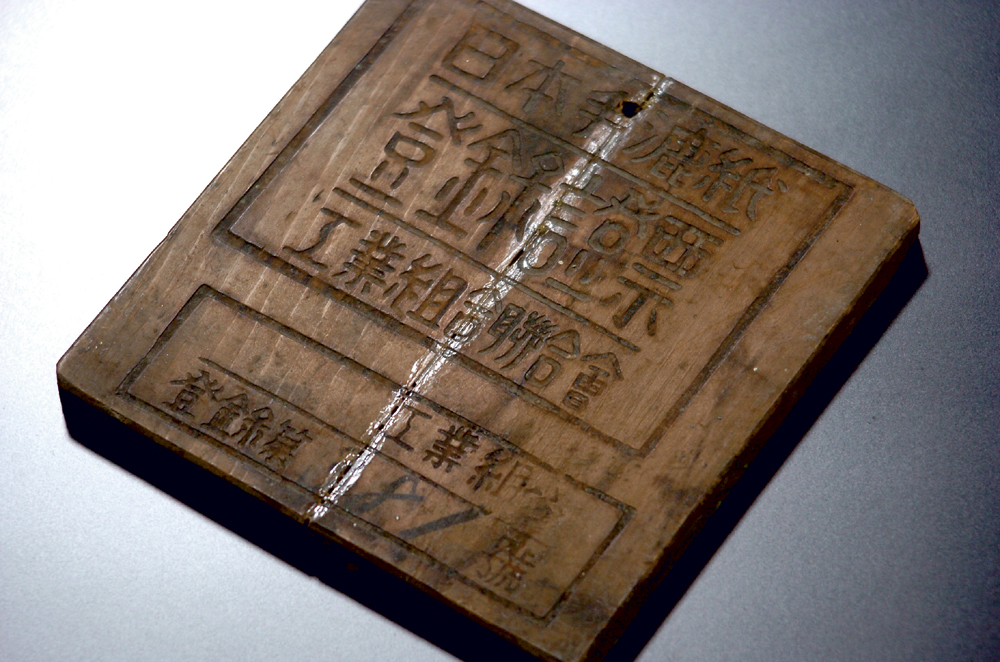 日本手漉紙
登錄證票
工業組合聯合會
工業組合
登錄第 號